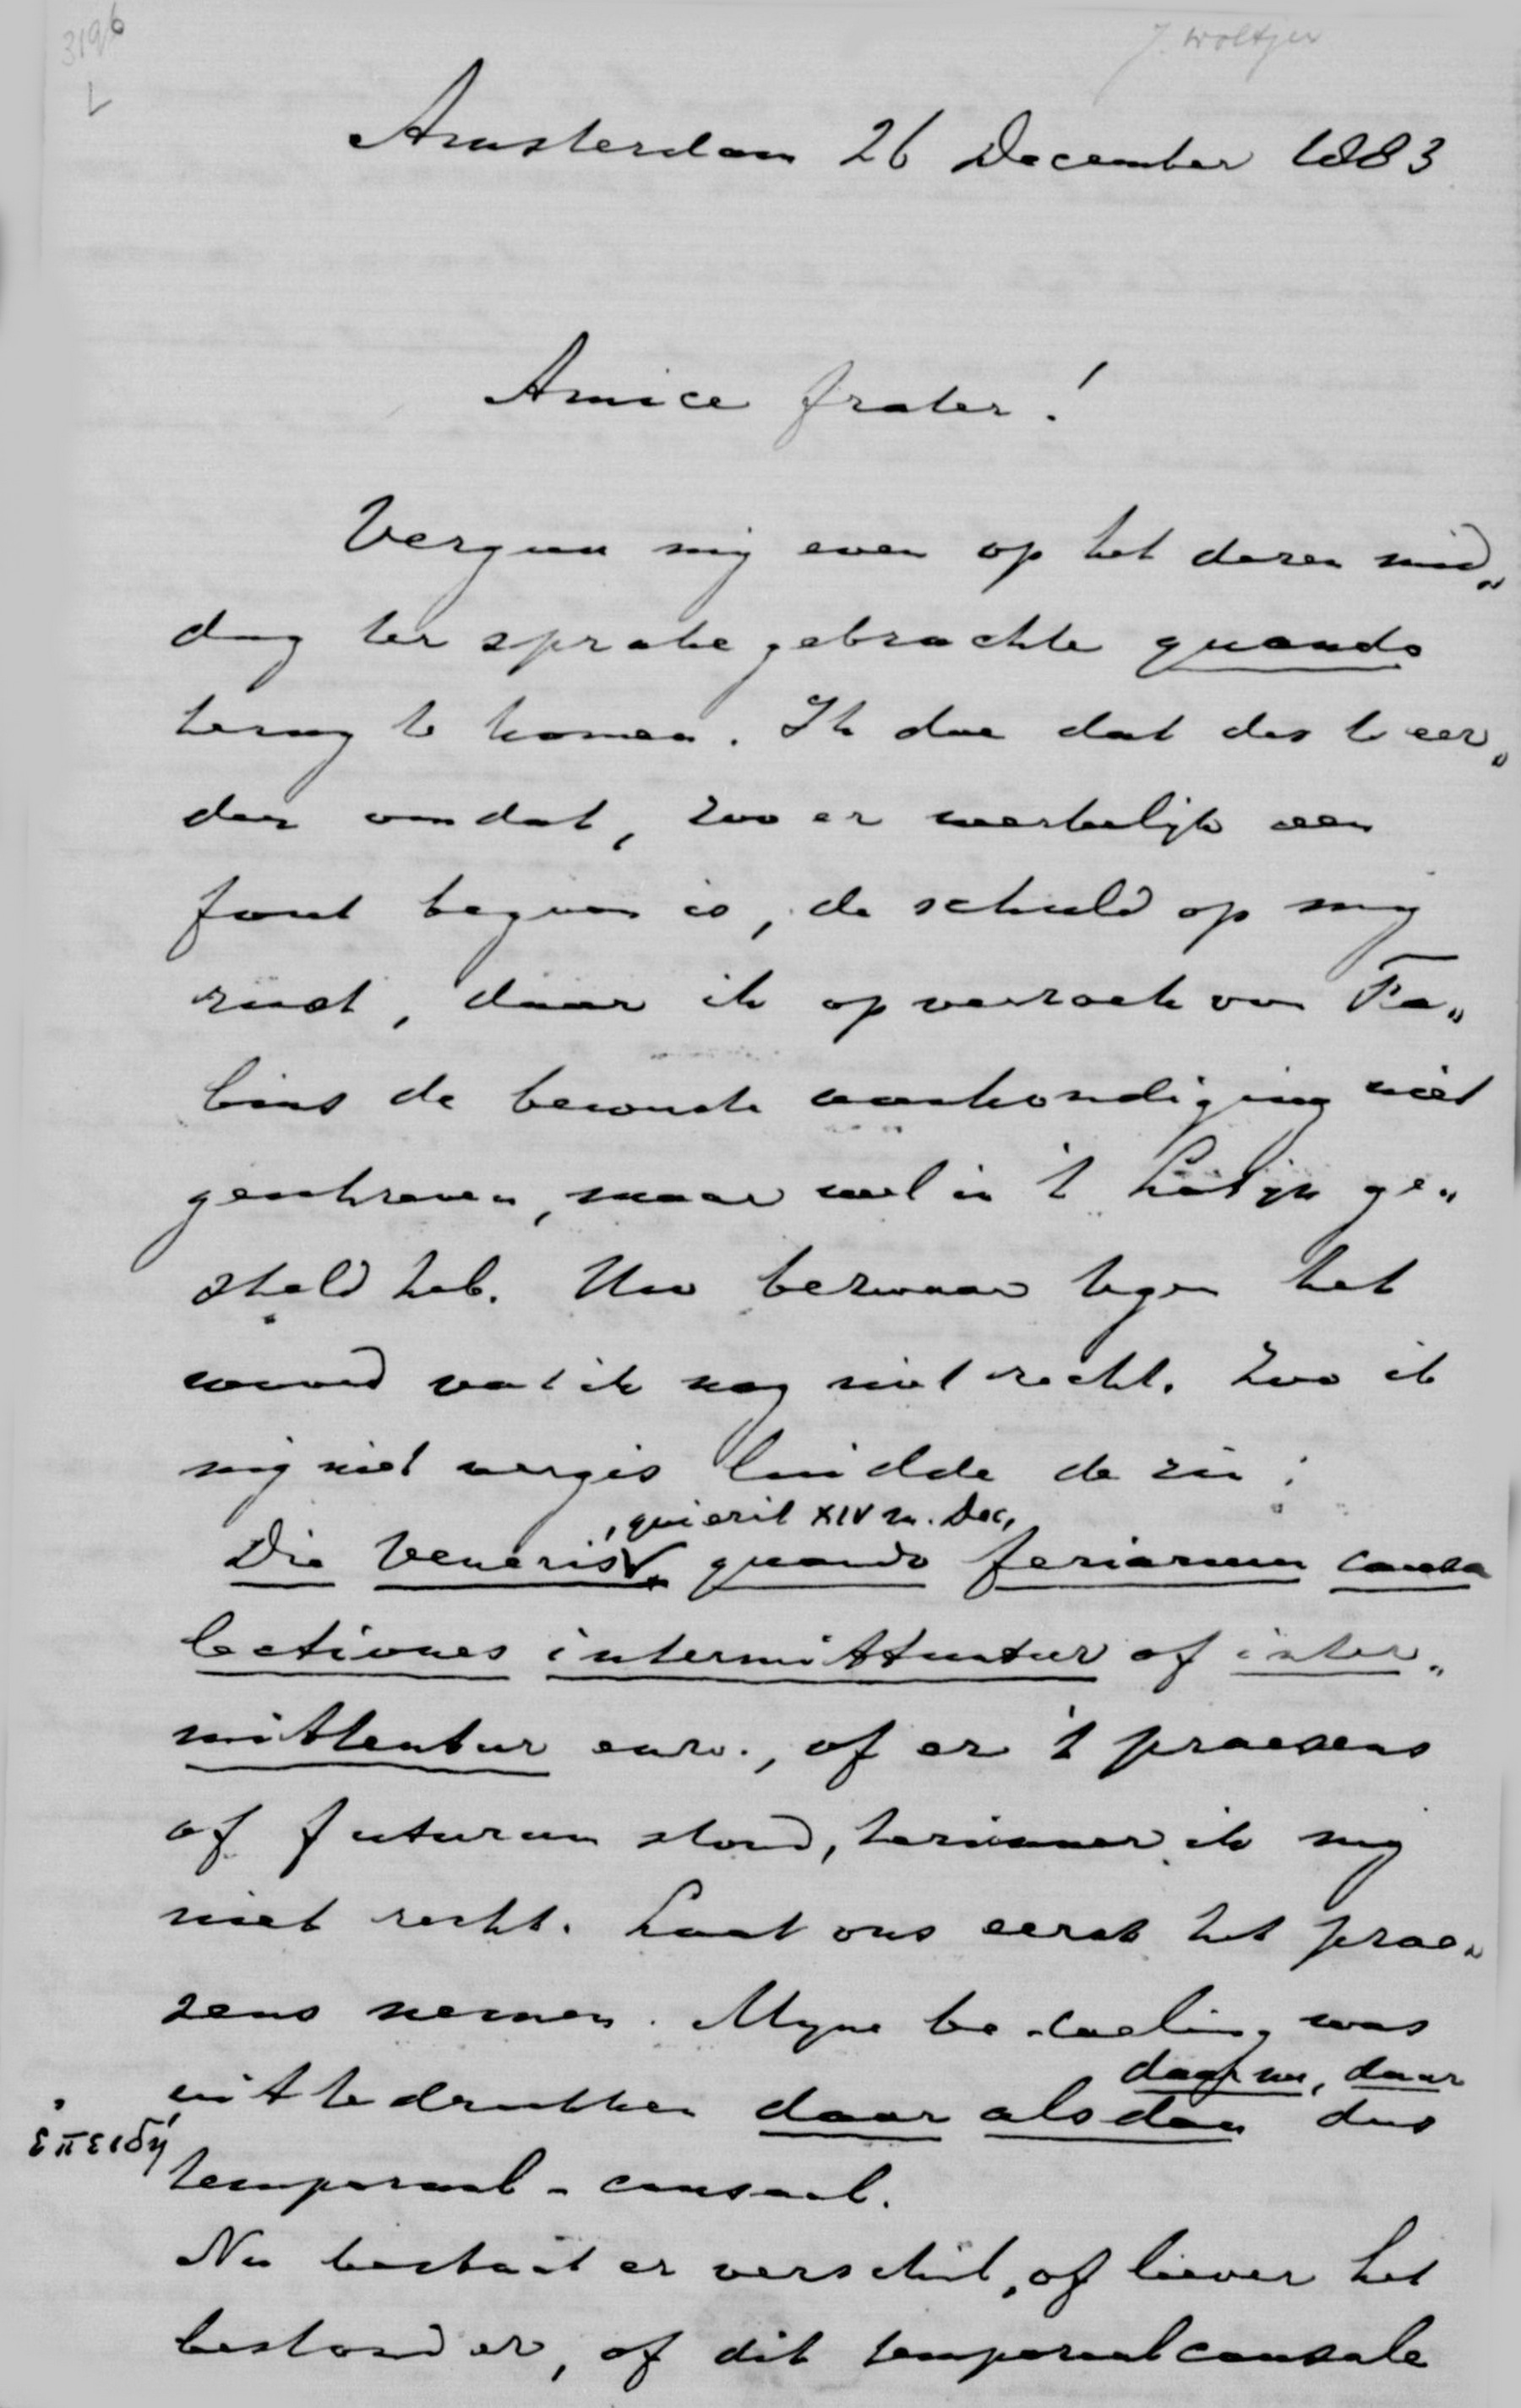 3196
J. Woltjer
Amsterdam 26 December 1883
Amice frater!
Vergun mij even op het dezen mid„
dag ter sprake gebrachte quando
terug te komen. Ik doe dat des te eer„
der omdat, zoo er werkelijk een
fout begaan is, de schuld op mij
rust, daar ik op verzoek van Fa„
bius de bewuste aankondiging niet
geschreven, maar wel in 't Latijn ge„
steld heb. Uw bezwaar tegen het
woord vat ik nog niet recht. Zoo ik
mij niet vergis luidde de zin:
, qui erit XIV m. Dec,
Die Veneris quando feriarum causa
lectiones intermittuntur of inter„
mittentur enz., of er 't praesens
of futurum stond, herinner ik mij
niet recht. Laat ons eerst het prae„
sens nemen. Mijne bedoeling was
daar nu, daar
uit te drukken daar alsdan dus
ἐπειδή
temporaal-causaal.
Nu bestaat er verschil, of liever het
bestond er, of dit temporaalcausale